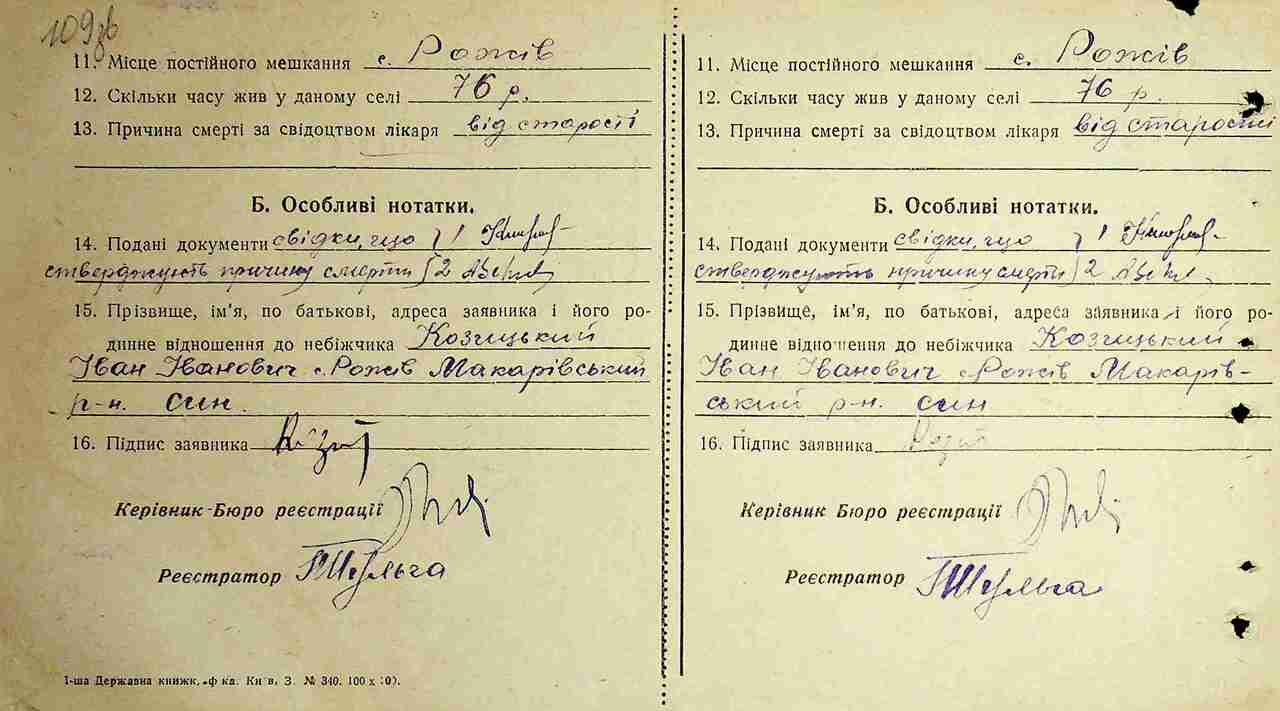 109зв
11. Місце постійного мешкання с. Рожів
12. Скільки часу жив у даному селі 76 р.
13. Причина смерті за свідоцтвом лікаря від старості
Б. Особливі нотатки.
14. Подані документи свідки, що } 1
стверджують причину смерти } 2
15. Прізвище, ім'я, по батькові, адреса заявника і його ро-
динне відношення до небіжчика Козицький
Іван Іванович с. Рожів Макарівський
р-н. син.
16. Підпис заявника
Керівник Бюро реєстрації
Реєстратор Шульга
1-ша Державна книжк. ф-ка. Київ, З. № 340. 100 x
11. Місце постійного мешкання с. Рожів
12. Скільки часу жив у даному селі 76 р.
13. Причина смерті за свідоцтвом лікаря від старости
Б. Особливі нотатки.
14. Подані документи свідки, що } 1
стверджують причину смерти } 2
15. Прізвище, ім'я, по батькові, адреса заявника і його ро-
динне відношення до небіжчика Козицький
Іван Іванович с. Рожів Макарів-
ський р-н. син
16. Підпис заявника
Керівник Бюро реєстрації
Реєстратор Шульга